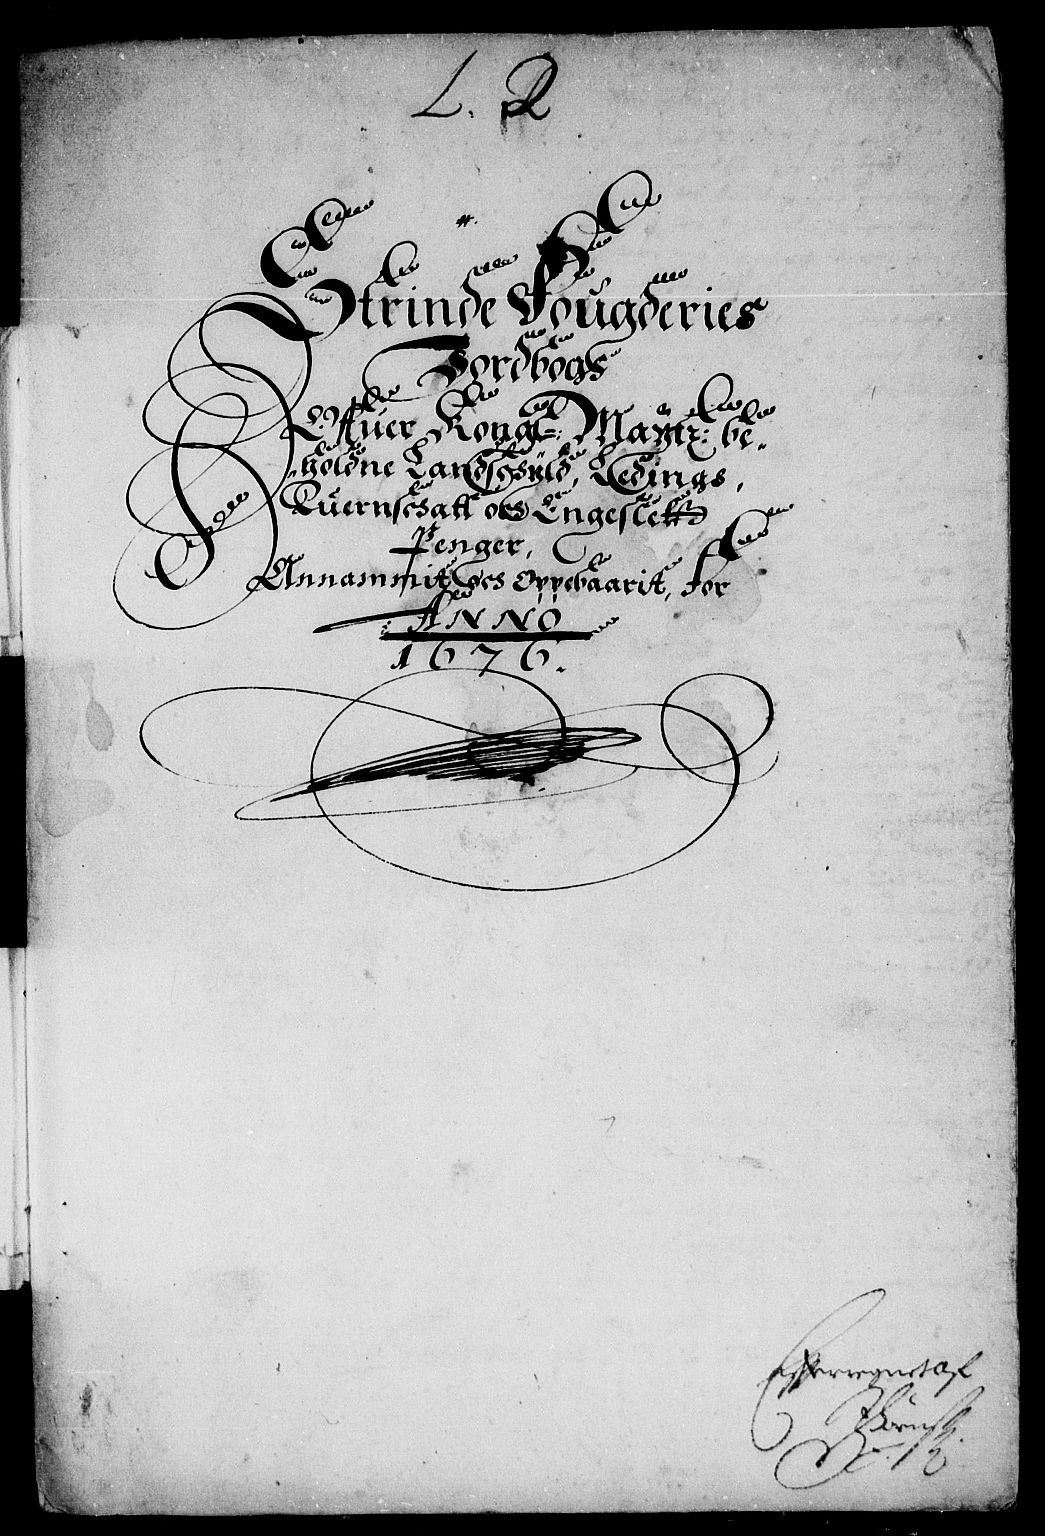 L. R
Strinde Fougderies
Jordbogs
Offuer Kongl: Maytz: be-
holdne Landschÿld, Ledings,
Quernschatt och Engeslett
Penger,
Annammit och Oppebaarit, for
ANNO
1676.
Efterregnet af